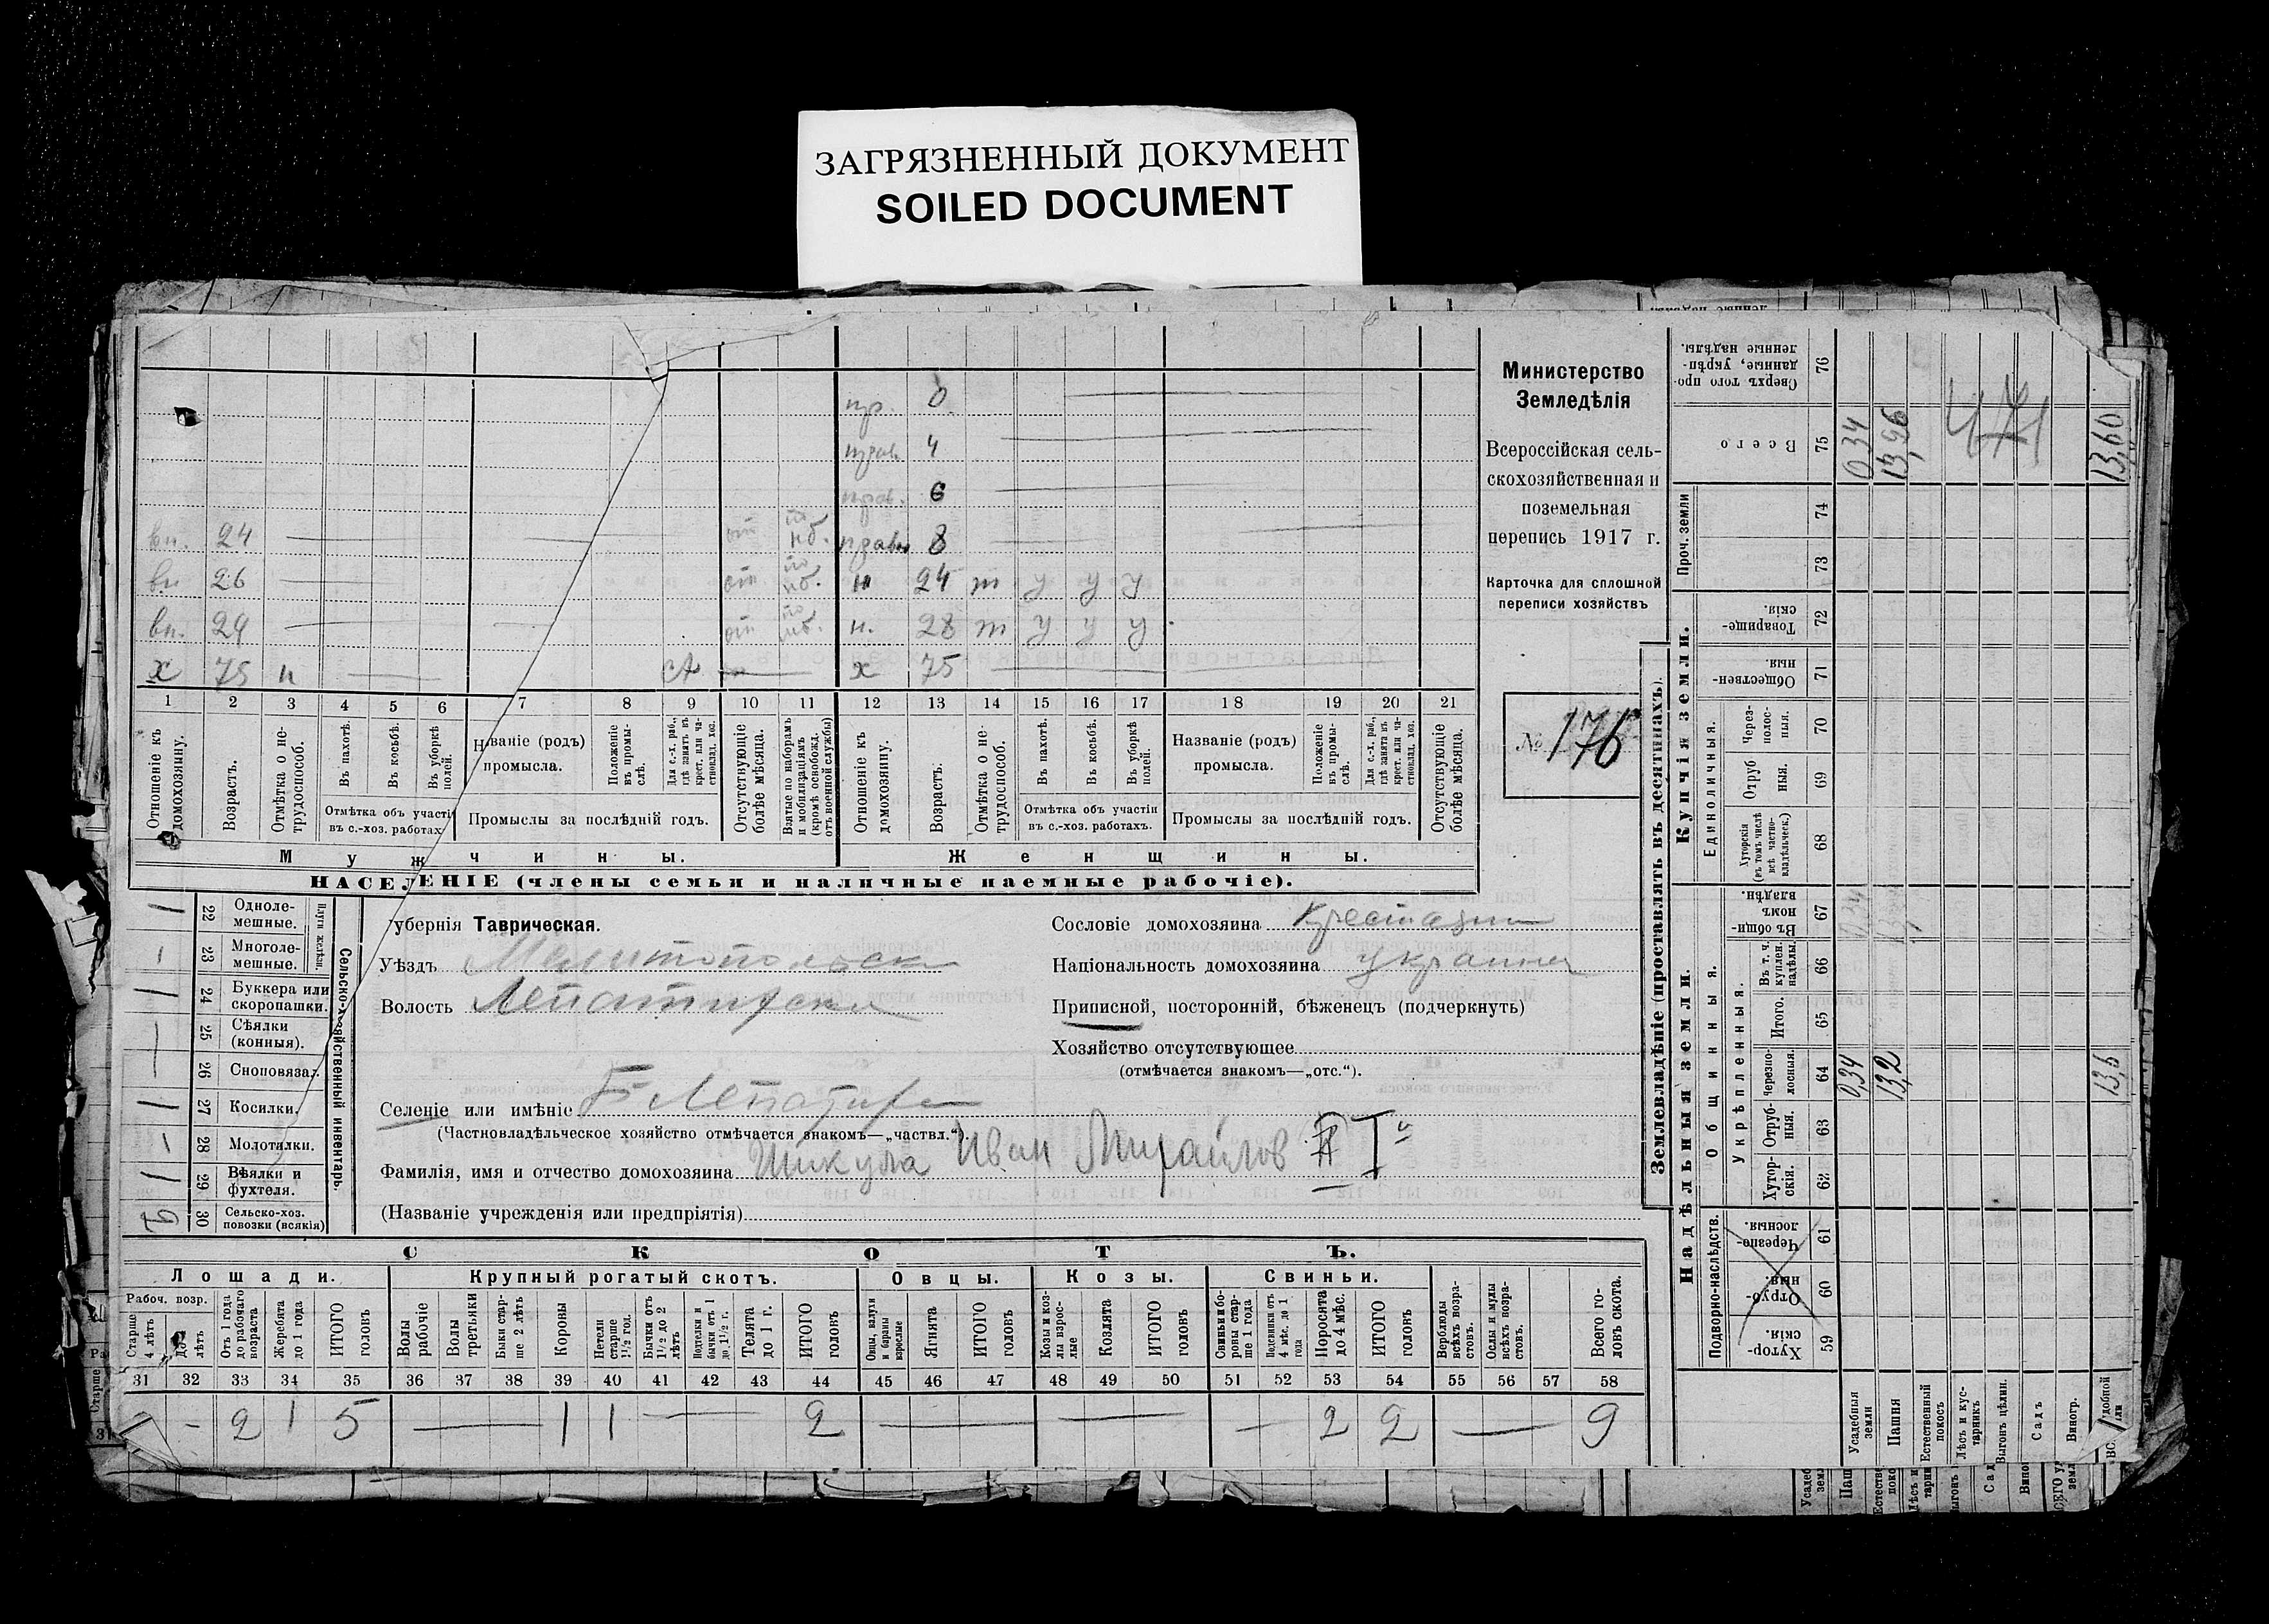 ЗАГРЯЗНЕННЫЙ ДОКУМЕНТ
SOILED DOCUMENT
пр. 0
прав. 4
прав. 6
вн. 24 от по моб. правн. 8
вн. 26 от по моб. н 24 т у у у
вн. 29 от по моб. н. 28 т у у у
х 75 н х 75
1 2 3 4 5 6 7 8 9 10 11 12 13 14 15 16 17 18 19 20 21
Отношеніе къ домохозяину.
Возрастъ.
Отмѣтка о не-трудоспособ.
Въ пахотѣ.
Въ косьбѣ.
Въ уборкѣ полей.
Отмѣтка объ участіи
въ с.-хоз. работах
Названіе (родъ)
промысла.
Положеніе въ промы-слѣ.
Для с.-х. раб., гдѣ занятъ въ крест. или ча-стновлад. хоз.
Промыслы за послѣдній годъ.
Отсутствующіе болѣе мѣсяца.
Взятые по наборамъ и мобилизаціямъ (кромѣ освобожд. отъ военной службы)
Отношеніе къ домохозяину.
Возрастъ.
Отмѣтка о не-трудоспособ.
Въ пахотѣ.
Въ косьбѣ.
Въ уборкѣ полей.
Отмѣтка объ участіи
въ с.-хоз. работахъ.
Названіе (родъ)
промысла.
Положеніе въ промы-слѣ.
Для с.-х. раб., гдѣ занята въ крест. или ча-стновлад. хоз.
Промыслы за послѣдній годъ.
Отсутствующіе болѣе мѣсяца.
Мужчины.
Женщины.
НАСЕЛЕНІЕ (члены семьи и наличные наемные рабочіе).
Министерство
Земледѣлія
Всероссійская сель-
скохозяйственная и
поземельная
перепись 1917 г.
Карточка для сплошной
переписи хозяйствъ
№ 176
22 Одноле-мешные.
23 Многоле-мешные.
Плуги желѣзн.
24 Буккера или скоропашки.
25 Сѣялки (конныя).
26 Сноповязал.
27 Косилки.
28 Молотилки.
29 Вѣялки и фухтеля.
30 Сельско-хоз. повозки (всякія)
Сельско-хозяйственный инвентарь.
Губернія Таврическая.
Уѣздъ Мелитопольск
Волость Лепатихск
Селеніе или имѣніе Б Лепатиха
(Частновладѣльческое хозяйство отмѣчается знакомъ—„частвл.“).
Фамилія, имя и отчество домохозяина Шикула Иван Михайлов
(Названіе учрежденія или предпріятія)
Сословіе домохозяина крестьянин
Національность домохозяина украинец
Приписной, посторонній, бѣженецъ (подчеркнуть)
Хозяйство отсутствующее
(отмѣчается знакомъ—„отс.“).
СКОТЪ.
Лошади. Крупный рогатый скотъ. Овцы. Козы. Свиньи.
Рабоч. возр.
Старше 4 лѣтъ
До лѣтъ
Отъ 1 года до рабочаго возраста
Жеребята до 1 года
ИТОГО головъ
Волы рабочіе
Волы третьяки
Быки стар-ше 2 лѣтъ
Коровы
Нетели старше 1½ год.
Бычки отъ 1½ до 2 лѣтъ
Подтелки и бычки отъ 1 до 1½ г.
Телята до 1 г.
ИТОГО головъ
Овцы, валухи и бараны взрослые
Ягнята
ИТОГО головъ
Козы и коз-лы взрос-лые
Козлята
ИТОГО головъ
Свиньи и бо-ровы стар-ше 1 года
Подсвинки отъ 4 мѣс. до 1 года
Поросята до 4 мѣс.
ИТОГО головъ
Верблюды всѣхъ возра-стовъ.
Ослы и мулы всѣхъ возра-стовъ.
Всего го-ловъ скота.
31 32 33 34 35 36 37 38 39 40 41 42 43 44 45 46 47 48 49 50 51 52 53 54 55 56 57 58
- 2 1 5 — 1 1 — 2 — — - 2 2 — 9
Землевладѣніе (проставлять въ десятинахъ).
Надѣльныя земли.
Купчія земли.
Подворно-наслѣдств.
Общинныя.
Укрѣпленныя.
Единоличныя.
Проч. земли
Хутор-скія. 59
Отруб-ныя. 60
Черезпо-лосныя. 61
Хутор-скія. 62
Отруб-ныя. 63
Черезпо-лосныя. 64
Итого. 65
Въ т. ч. куплен. надѣлы. 66
Въ общин-номъ владѣн. 67
Хуторскія (въ томъ числѣ всѣ частно-владѣльческ.) 68
Отруб ныя. 69
Через-полос-ныя. 70
Обществен-ныя. 71
Товарище-скія. 72
73
74
Всего 75
Сверхъ того про-данные, укрѣп-ленные надѣлы. 76
Усадебныя земли 0,34 0,34
Пашня 13,2 13,96
Естественный покосъ
Лѣсъ и кус-тарникъ
Выгонъ цѣлин.
Садъ
Виногр.
удобной 13,6 13,60
471